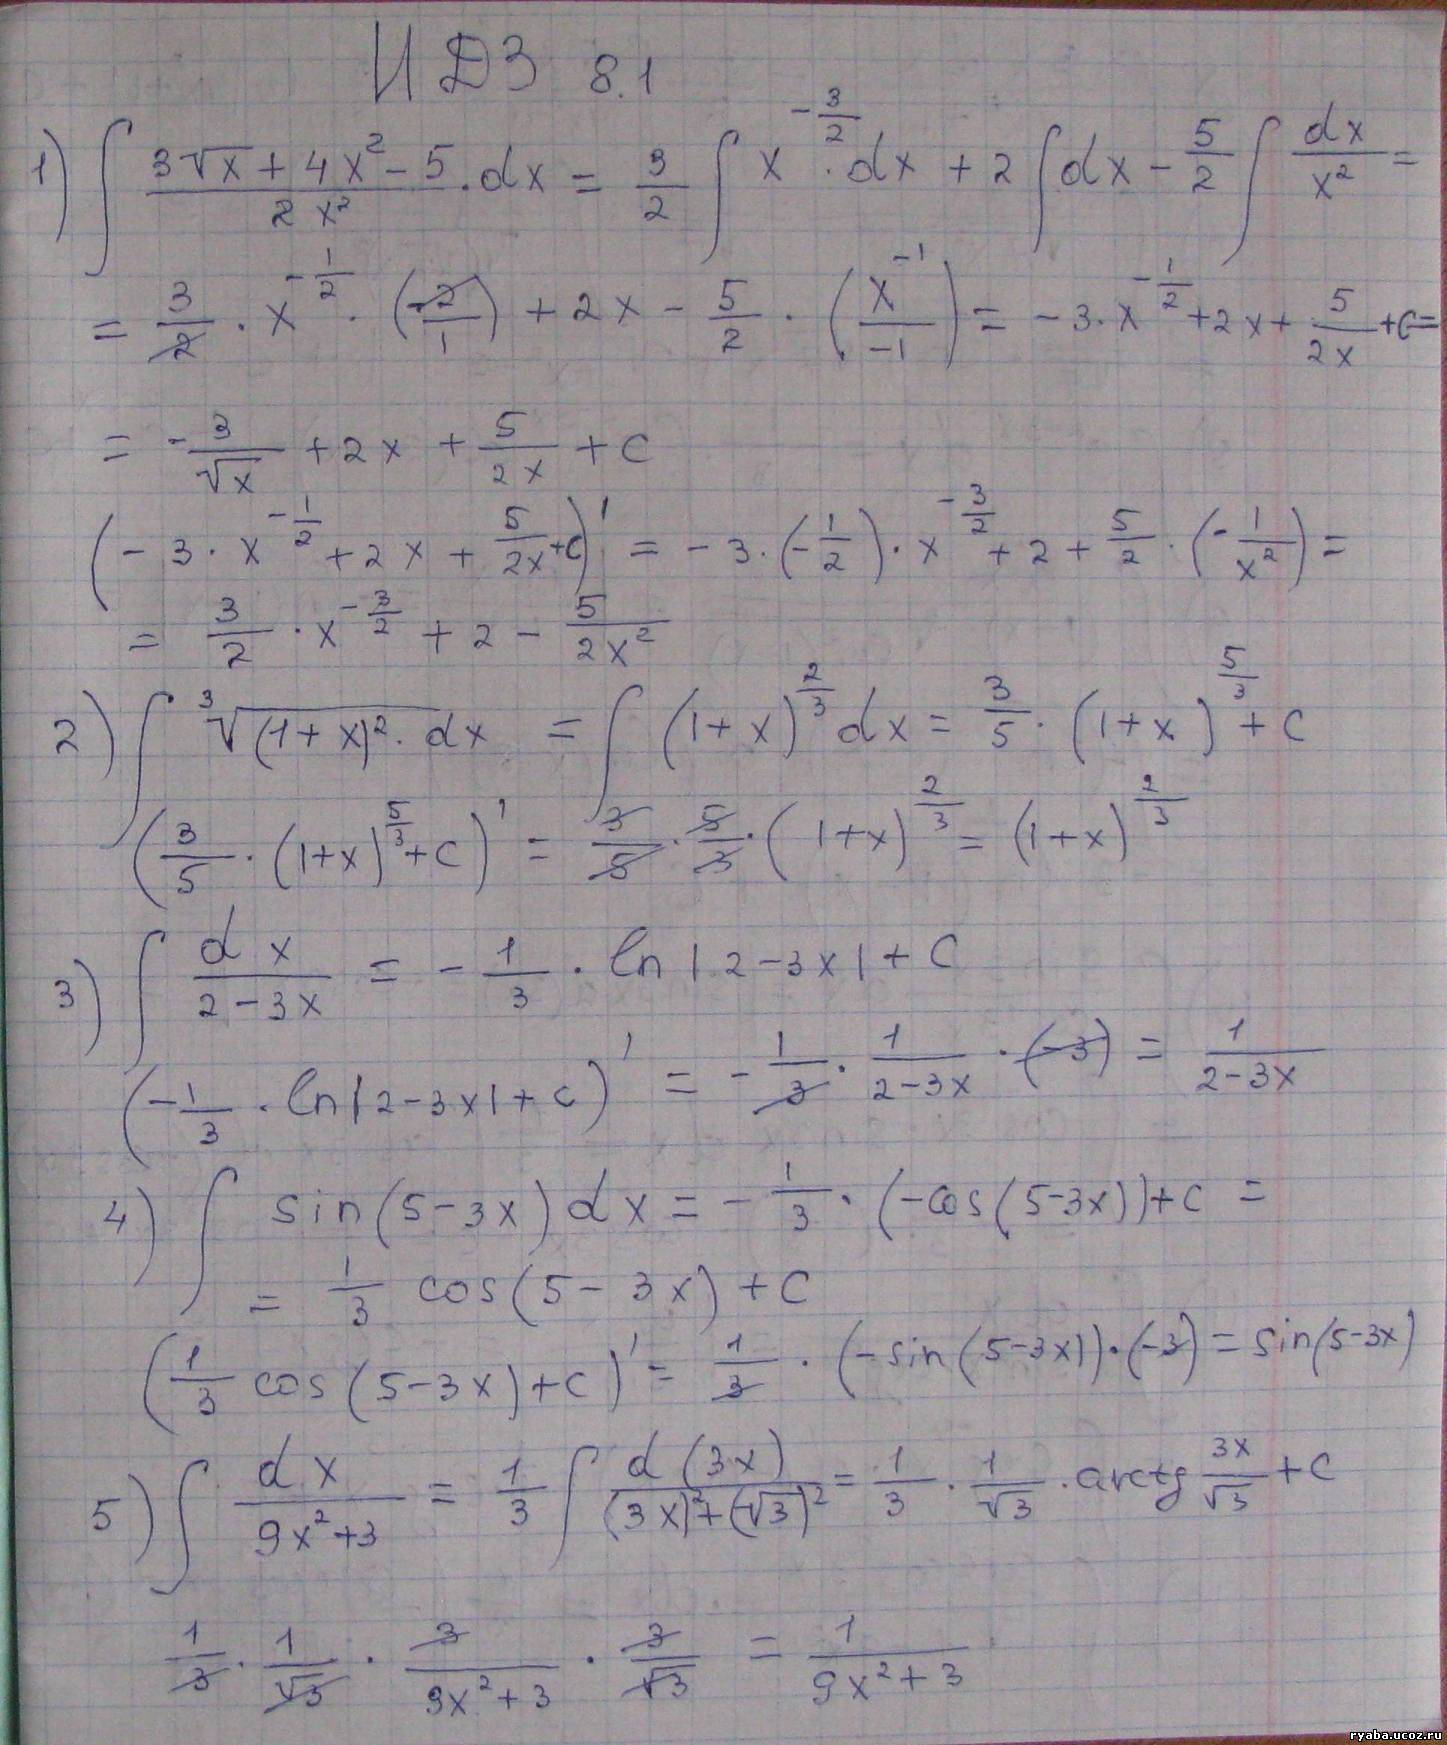 ИДЗ 8.1
1) ∫ (3√x + 4x² - 5)/(2x²) · dx = 3/2 ∫ x^(-3/2) · dx + 2 ∫ dx - 5/2 ∫ dx/x² =
= 3/2 · x^(-1/2) · (-2/1) + 2x - 5/2 · (x^(-1)/-1) = -3 · x^(-1/2) + 2x + 5/(2x) + C =
= -3/√x + 2x + 5/(2x) + C
(-3 · x^(-1/2) + 2x + 5/(2x) + C)' = -3 · (-1/2) · x^(-3/2) + 2 + 5/2 · (-1/x²) =
= 3/2 · x^(-3/2) + 2 - 5/(2x²)
2) ∫ ∛((1+x)² · dx = ∫ (1+x)^(2/3) dx = 3/5 · (1+x)^(5/3) + C
(3/5 · (1+x)^(5/3) + C)' = 3/5 · 5/3 · (1+x)^(2/3) = (1+x)^(2/3)
3) ∫ dx/(2-3x) = -1/3 · ln|2-3x| + C
(-1/3 · ln|2-3x| + C)' = -1/3 · 1/(2-3x) · (-3) = 1/(2-3x)
4) ∫ sin(5-3x) dx = -1/3 · (-cos(5-3x)) + C =
= 1/3 cos(5-3x) + C
(1/3 cos(5-3x) + C)' = 1/3 · (-sin(5-3x)) · (-3) = sin(5-3x)
5) ∫ dx/(9x²+3) = 1/3 ∫ d(3x)/((3x)²+(√3)²) = 1/3 · 1/√3 · arctg 3x/√3 + C
1/3 · 1/√3 · 3/(9x²+3) · 3/√3 = 1/(9x²+3)
ryaba.ucoz.ru